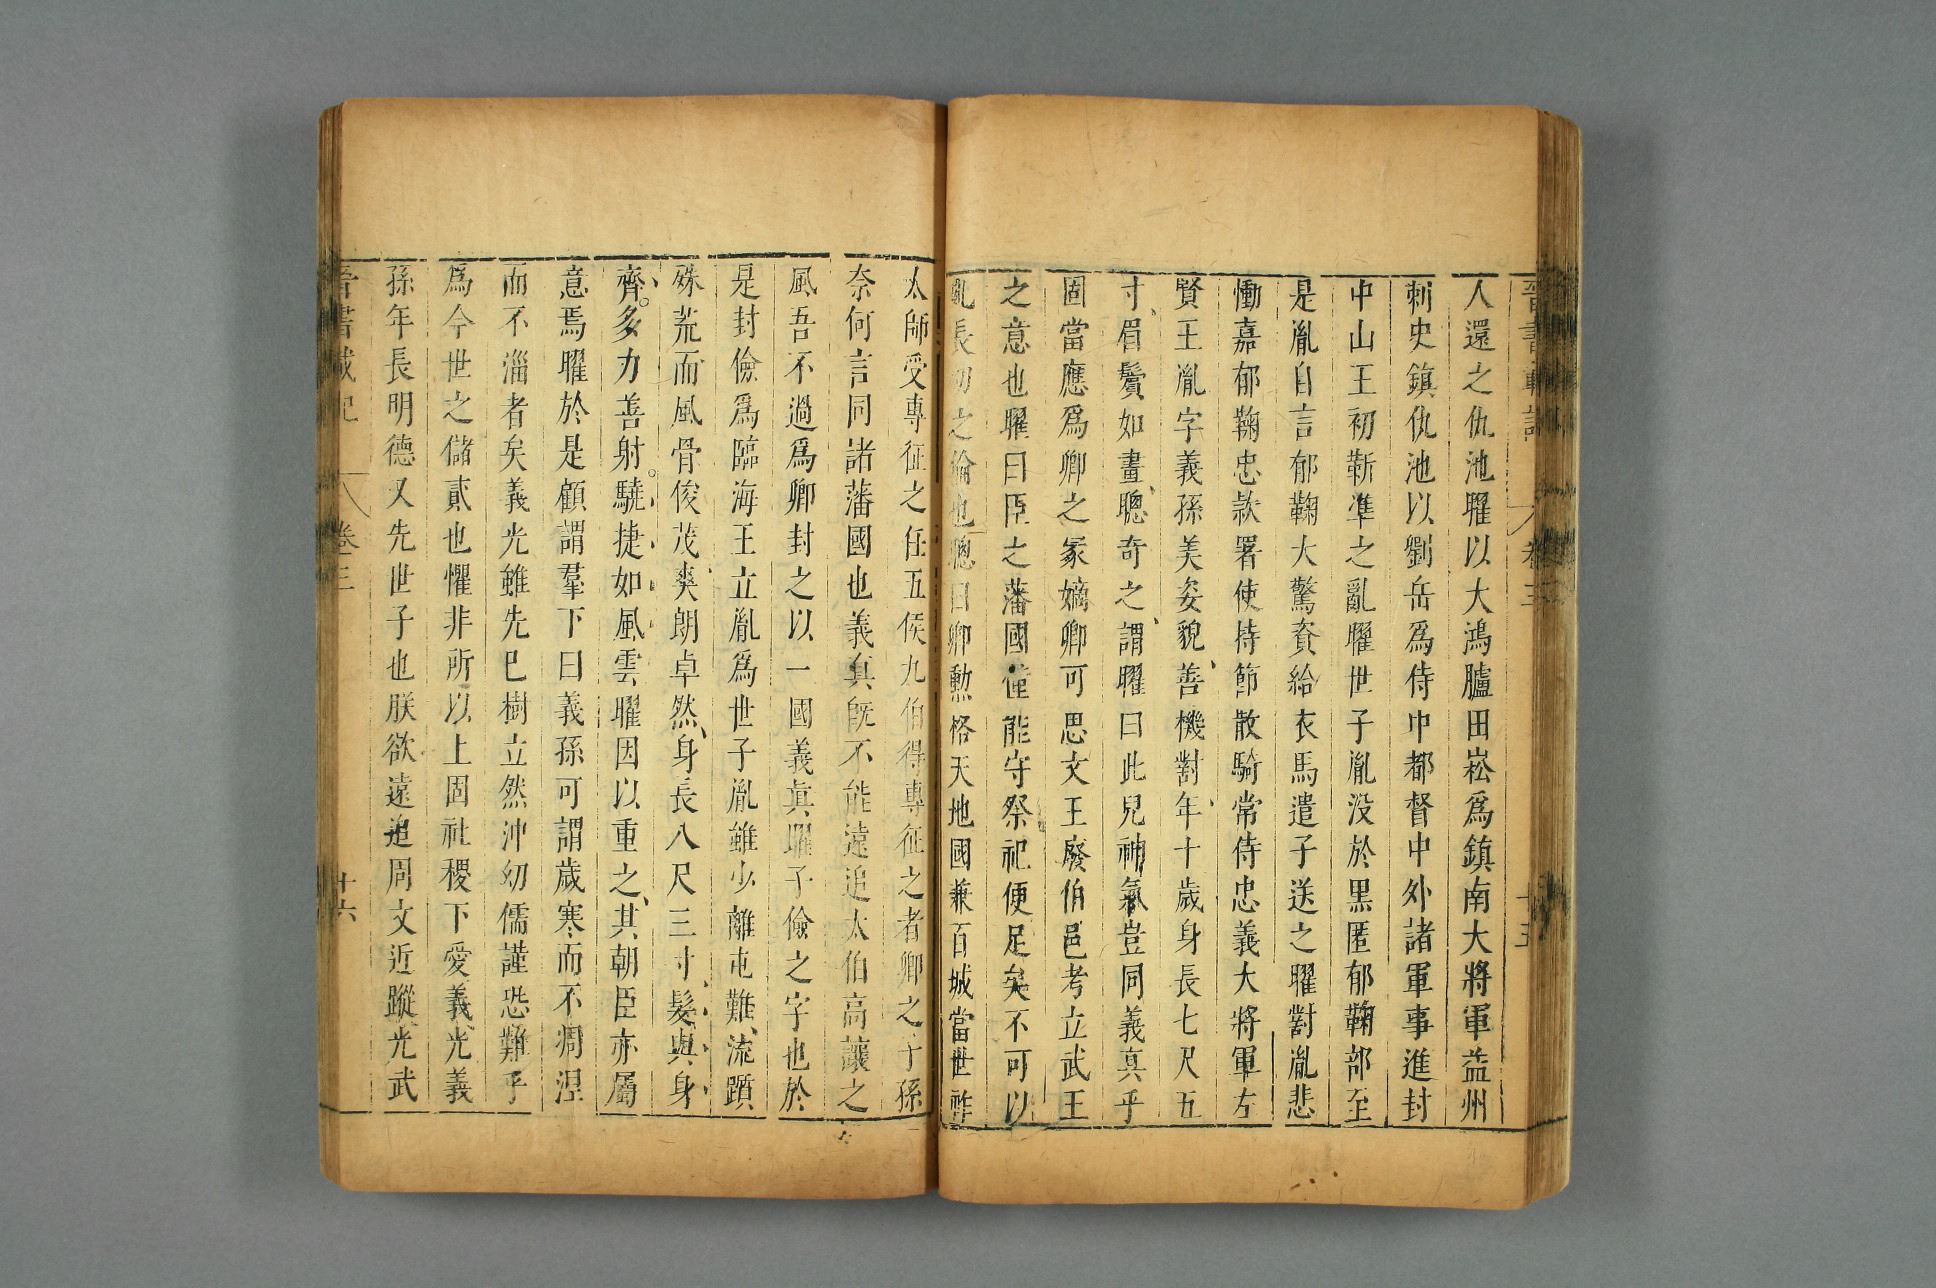 晉書載記 卷三 十五
人還之仇池曜以大鴻臚田崧爲鎮南大將軍益州
刺史鎮仇池以劉岳爲侍中都督中外諸軍事進封
中山王初靳準之亂曜世子胤没於黑匿郁鞠部至
是胤自言郁鞠大驚資給衣馬遣子送之曜對胤悲
慟嘉郁鞠忠款署使持節散騎常侍忠義大將軍左
賢王胤字義孫美姿貌善機對年十歲身長七尺五
寸眉鬢如畫聰奇之謂曜曰此兒神氣豈同義真乎
固當應爲卿之冢嫡卿可思文王廢伯邑考立武王
之意也曜曰臣之藩國僅能守祭祀便足矣不可以
亂長幼之倫也聰曰卿勲格天地國兼百城當世祚
太師受專征之任五侯九伯得專征之者卿之子孫
奈何言同諸藩國也義眞旣不能遠追太伯高讓之
風吾不過爲卿封之以一國義眞曜子儉之字也於
是封儉爲臨海王立胤爲世子胤雖少離屯難流躓
殊荒而風骨俊茂爽朗卓然身長八尺三寸髮與身
齊多力善射驍捷如風雲曜因以重之其朝臣亦屬
意焉曜於是顧謂羣下曰義孫可謂歲寒而不凋涅
而不淄者矣義光雖先已樹立然沖幼儒謹恐難乎
爲今世之儲貳也懼非所以上固社稷下愛義光義
孫年長明德又先世子也朕欲遠追周文近蹤光武
晉書載記 卷三 十六